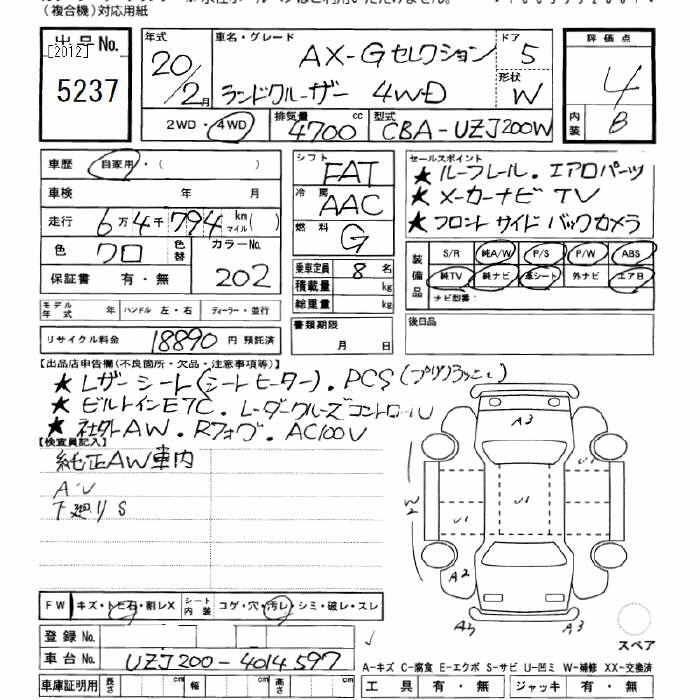 (複合機)対応用紙
出品No.
[2012]
5237
年式 20/2月
車名・グレード AX-Gセレクション
ランドクルーザー 4WD
ドア 5
形状 W
評価点 4
内装 B
2WD・4WD
排気量 4700 cc
型式 CBA-UZJ200W
車歴 自家用・( )
車検 年 月
走行 6万4千794 km マイル( )
色 クロ 色替 カラーNo. 202
保証書 有・無
シフト FAT
冷房 AAC
燃料 G
乗車定員 8 名
積載量 kg
総重量 kg
セールスポイント
★ ルーフレール.エアロパーツ
★ メーカーナビ TV
★ フロントサイドバックカメラ
装備品 S/R 純A/W P/S P/W ABS
純TV 純ナビ 革シート 外ナビ エアB
ナビ型番:
モデル年式 年 ハンドル 左・右 ディーラー・並行
書類期限 月 日
後日品
リサイクル料金 18890 円 預託済
【出品店申告欄(不良箇所・欠品・注意事項等)】
★ レザーシート(シートヒーター).PCS(プリクラッシュ)
★ ビルトインETC.レーダークルーズコントロール
★ 社外AW.Rフォグ.AC100V
【検査員記入】
純正AW車内
A・U
下廻りS
A3
U1
U1
W2
A2
A3
A3
FW キズ・トビ石・割レX シート内装 コゲ・穴・汚レ・シミ・破レ・スレ
登録No.
車台No. UZJ200-4014597
スペア
A-キズ C-腐食 E-エクボ S-サビ U-凹ミ W-補修 XX-交換済
車庫証明用 長さ cm 幅 cm 高さ cm
工具 有・無 ジャッキ 有・無